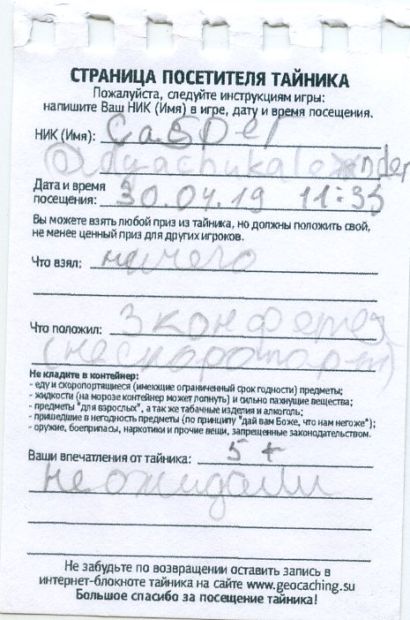 СТРАНИЦА ПОСЕТИТЕЛЯ ТАЙНИКА
Пожалуйста, следуйте инструкциям игры:
напишите Ваш НИК (Имя) в игре, дату и время посещения.
НИК (Имя): Casper
@dyachukalexander
Дата и время
посещения: 30.04.19 11:35
Вы можете взять любой приз из тайника, но должны положить свой,
не менее ценный приз для других игроков.
Что взял: ничего
Что положил: 3 конфеты
Не кладите в контейнер:
- еду и скоропортящиеся (имеющие ограниченный срок годности) предметы;
- жидкости (на морозе контейнер может лопнуть) и сильно пахнущие вещества;
- предметы "для взрослых", а так же табачные изделия и алкоголь;
- пришедшие в негодность предметы (по принципу "дай вам Боже, что нам негоже");
- оружие, боеприпасы, наркотики и прочие вещи, запрещенные законодательством.
Ваши впечатления от тайника: 5+
не ожидали
Не забудьте по возвращении оставить запись в
интернет-блокноте тайника на сайте www.geocaching.su
Большое спасибо за посещение тайника!